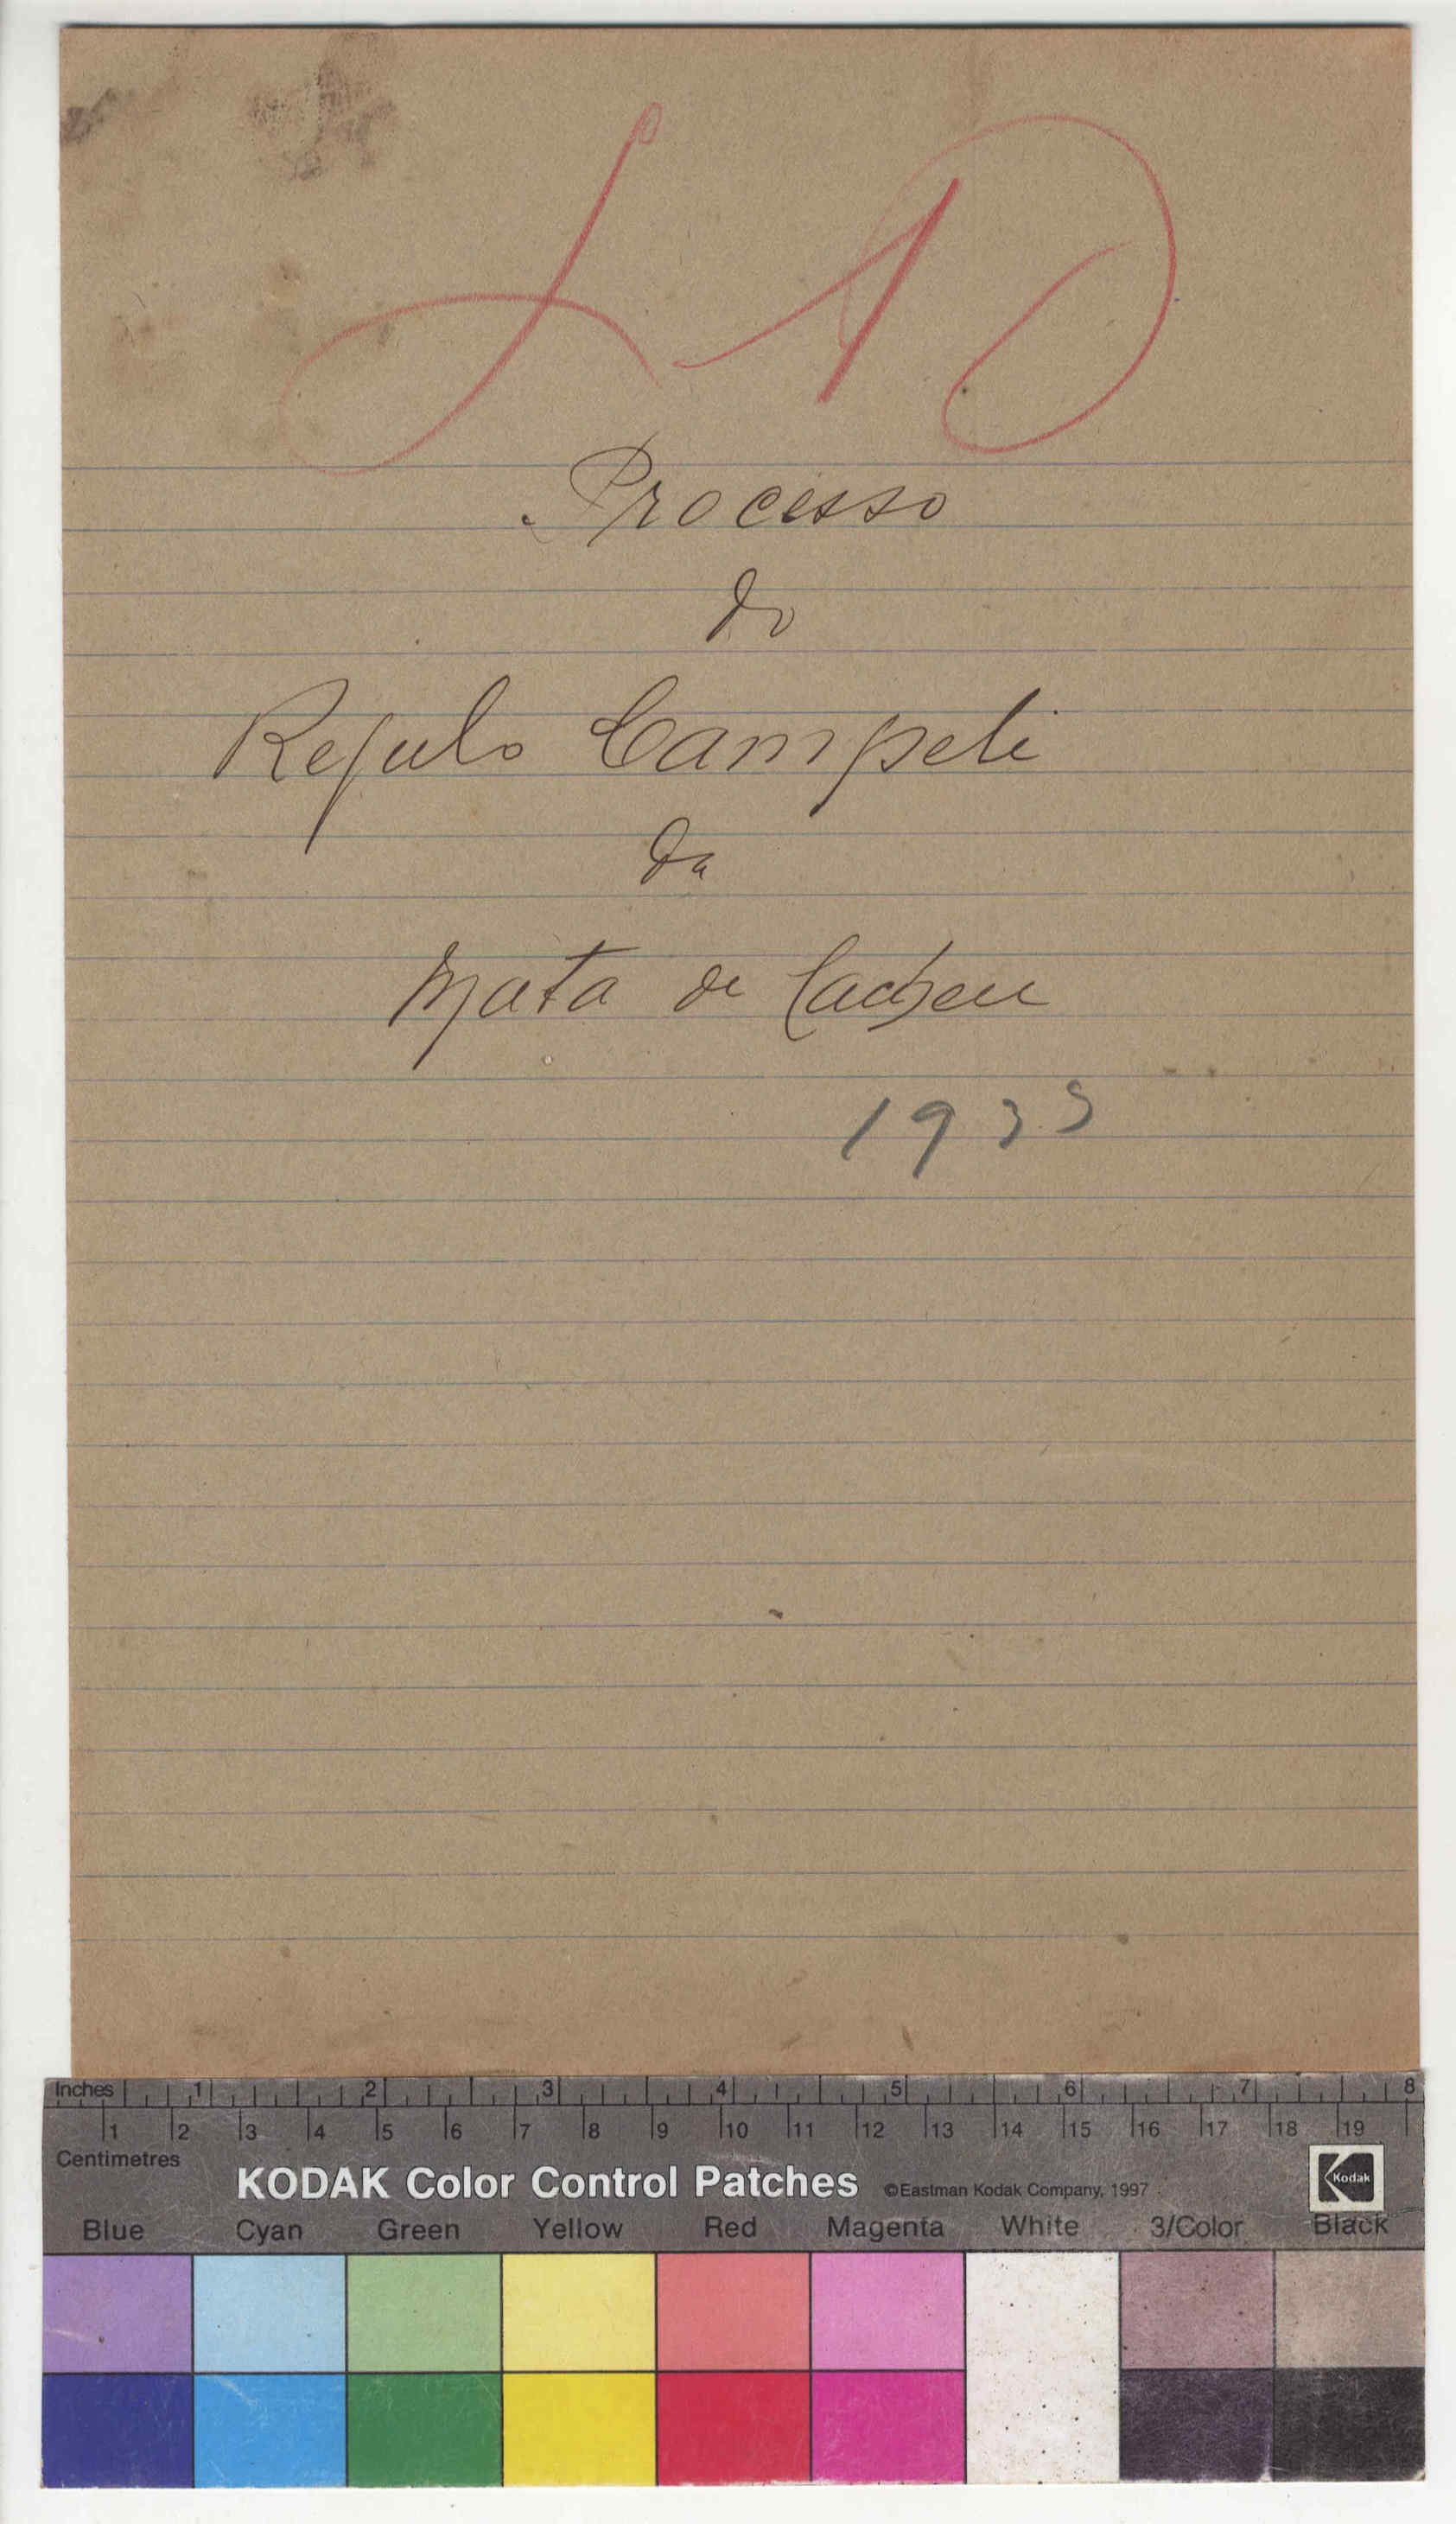 Processo
do
Regulo Campeli
da
Mata de Cacheu
1933
Inches 1 2 3 4 5 6 7 8
1 2 3 4 5 6 7 8 9 10 11 12 13 14 15 16 17 18 19
Centimetres
KODAK Color Control Patches ©Eastman Kodak Company, 1997 Kodak
Blue Cyan Green Yellow Red Magenta White 3/Color Black